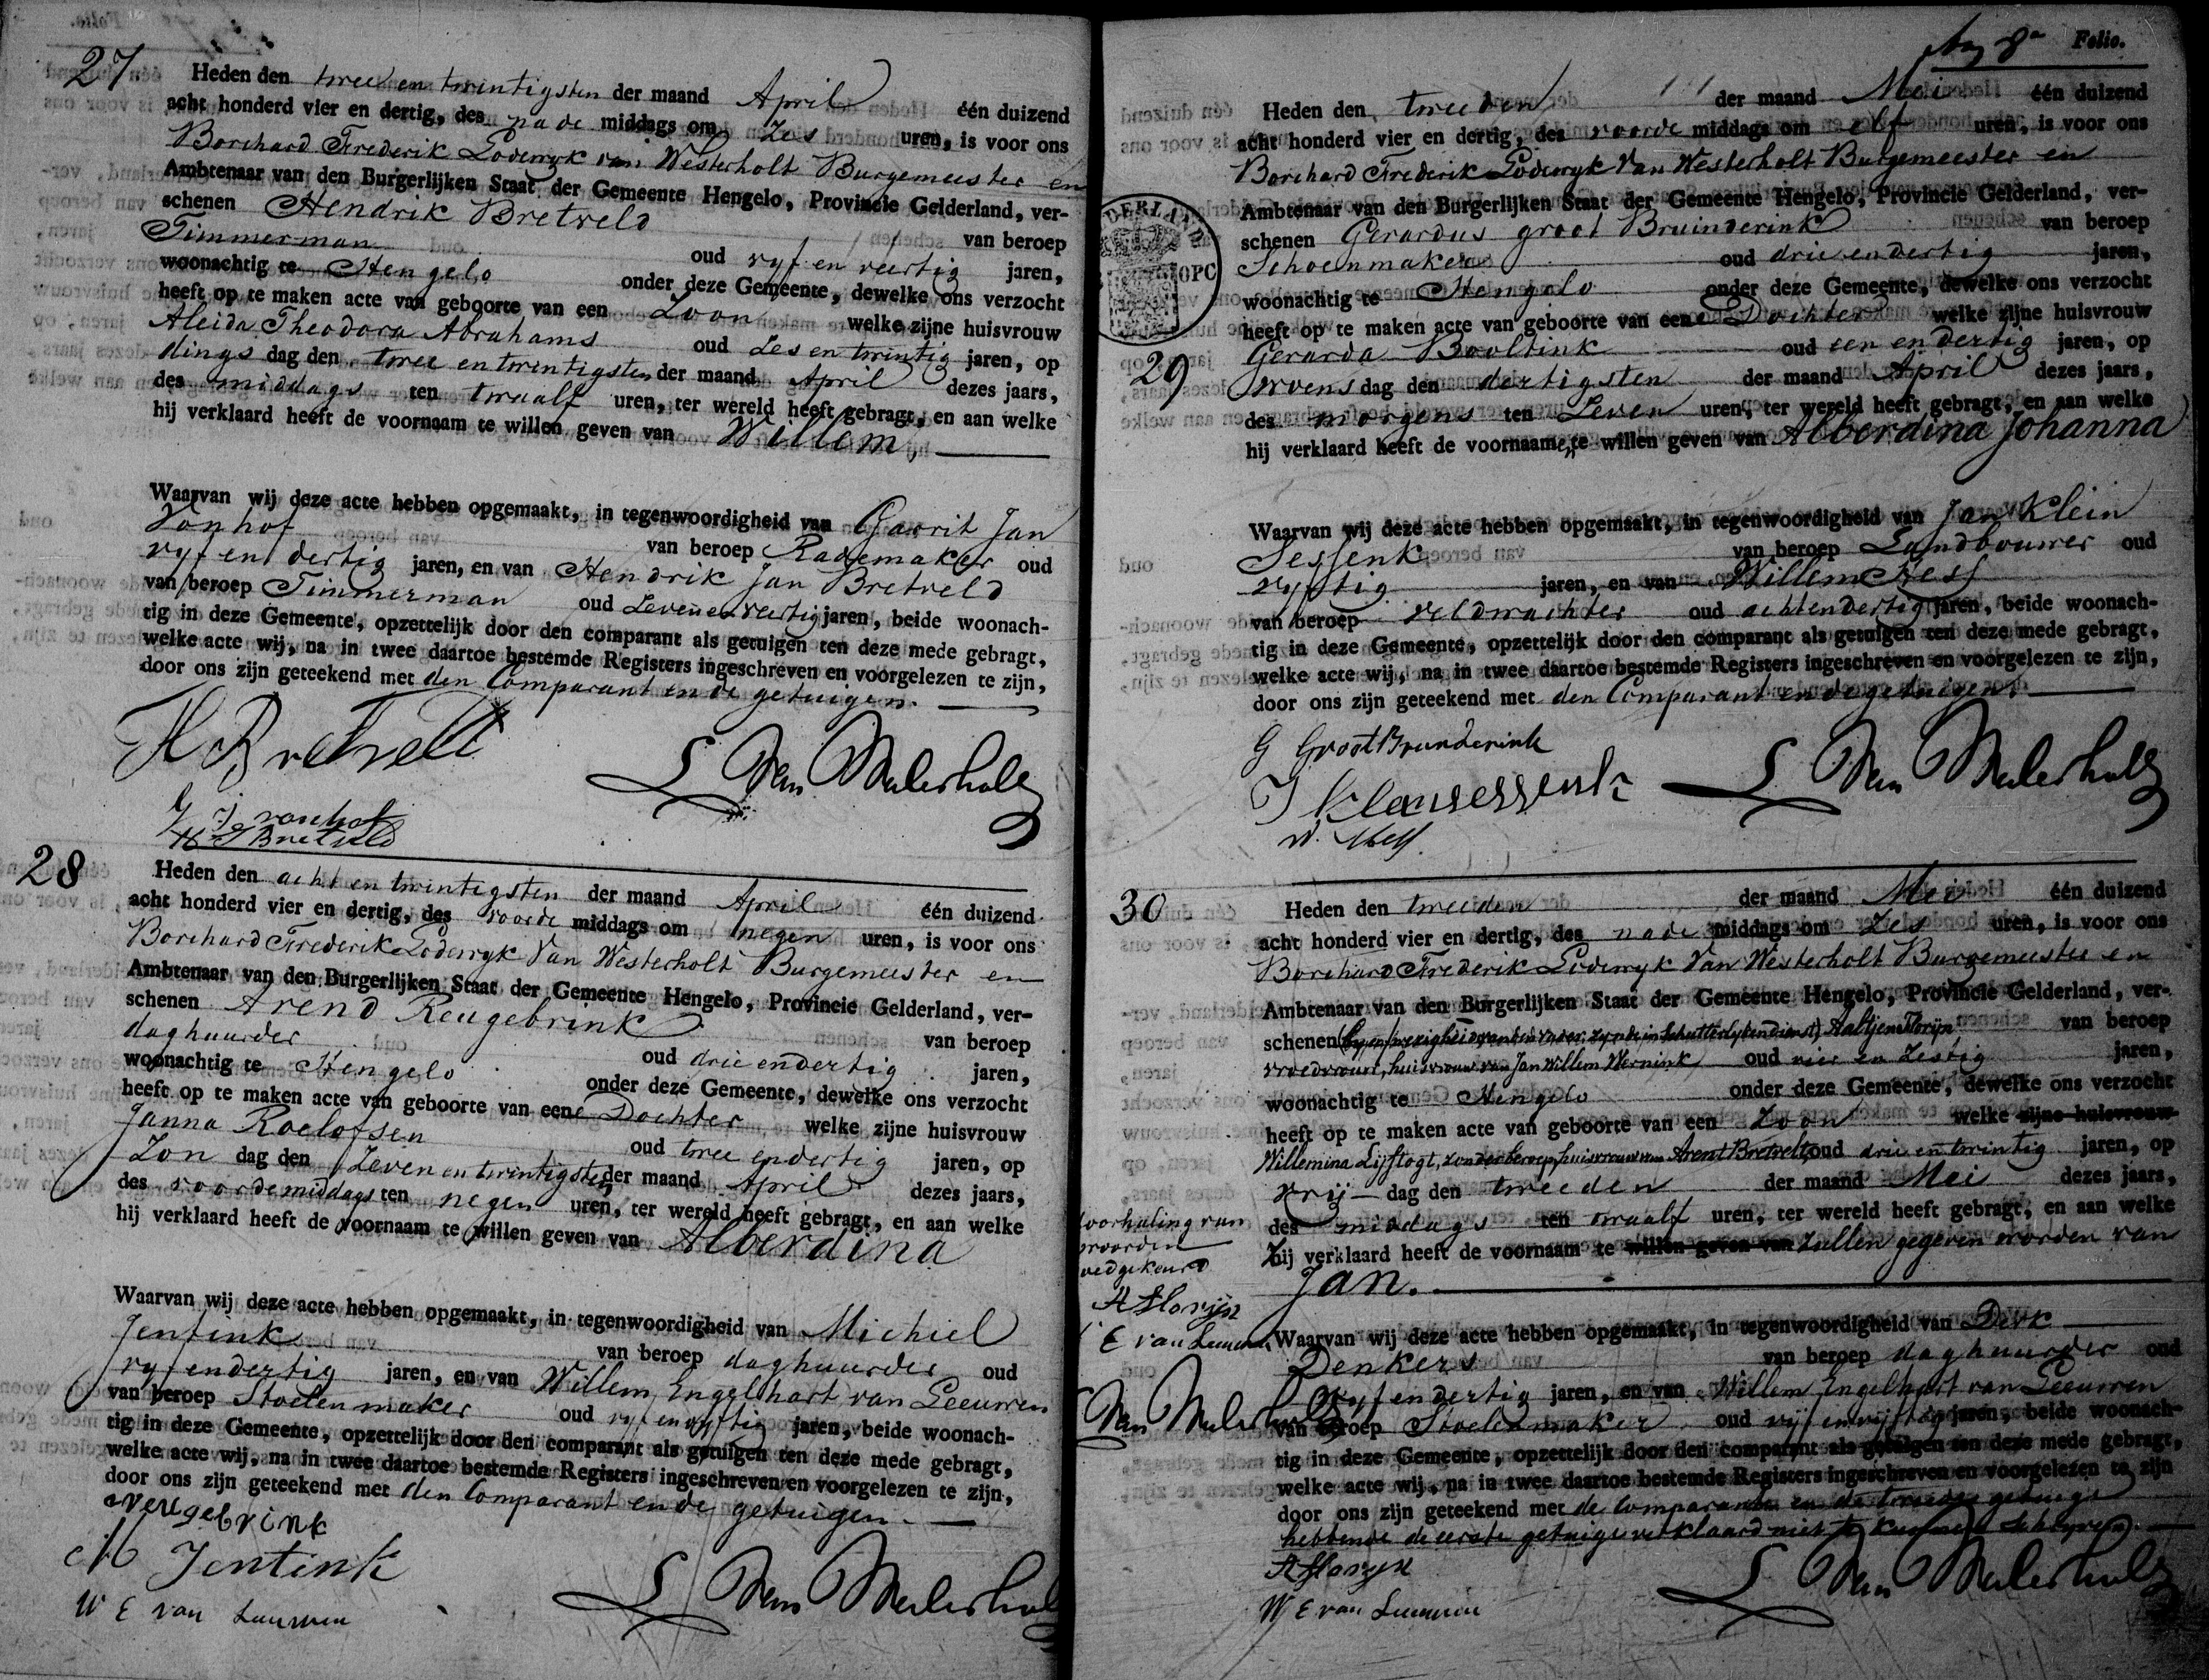 27
Heden den twee en twintigsten der maand April één duizend
acht honderd vier en dertig, des nade middags om Zes uren, is voor ons
Borchard Frederik Lodewyk van Westerholt Burgemeester en
Ambtenaar van den Burgerlijken Staat der Gemeente Hengelo, Provincie Gelderland, ver-
schenen Hendrik Bretveld van beroep
Timmerman oud vyf en veertig jaren,
woonachtig te Hengelo onder deze Gemeente, dewelke ons verzocht
heeft op te maken acte van geboorte van een Zoon welke zijne huisvrouw
Aleida Theodora Abrahams oud Zes en twintig jaren, op
dings dag den twee en twintigsten der maand April dezes jaars,
des middags ten twaalf uren, ter wereld heeft gebragt, en aan welke
hij verklaard heeft de voornaam te willen geven van Willem.
Waarvan wij deze acte hebben opgemaakt, in tegenwoordigheid van Garrit Jan
Vonhof van beroep Rademaker oud
vyf en dertig jaren, en van Hendrik Jan Bretveld
van beroep Timmerman oud Zeven en veertig jaren, beide woonach-
tig in deze Gemeente, opzettelijk door den comparant als getuigen ten deze mede gebragt,
welke acte wij, na in twee daartoe bestemde Registers ingeschreven en voorgelezen te zijn,
door ons zijn geteekend met den Comparant en de getuigen.
H Bretvelt
L Van Westerholt
G J vonhof
H J Bretveld
28
Heden den acht en twintigsten der maand April één duizend
acht honderd vier en dertig, des voorde middags om negen uren, is voor ons
Borchard Frederik Lodewyk Van Westerholt Burgemeester en
Ambtenaar van den Burgerlijken Staat der Gemeente Hengelo, Provincie Gelderland, ver-
schenen Arend Reugebrink van beroep
daghuurder oud drie endertig jaren,
woonachtig te Hengelo onder deze Gemeente, dewelke ons verzocht
heeft op te maken acte van geboorte van eene Dochter welke zijne huisvrouw
Janna Roelofsen oud twee endertig jaren, op
Zon dag den Zeven en twintigsten der maand April dezes jaars,
des voorde middags ten negen uren, ter wereld heeft gebragt, en aan welke
hij verklaard heeft de voornaam te willen geven van Alberdina
Waarvan wij deze acte hebben opgemaakt, in tegenwoordigheid van Michiel
Jentink van beroep daghuurder oud
vyf endertig jaren, en van Willem Engelhart van Leeuwen
van beroep Stoelenmaker oud vyf en vyftig jaren, beide woonach-
tig in deze Gemeente, opzettelijk door den comparant als getuigen ten deze mede gebragt,
welke acte wij, na in twee daartoe bestemde Registers ingeschreven en voorgelezen te zijn,
door ons zijn geteekend met den Comparant en de getuigen.
a reugebrink
M Jentink
W E van Leeuwen
L Van Westerholt
8n Folio.
29
Heden den tweeden der maand Mei één duizend
acht honderd vier en dertig, des voorde middags om elf uren, is voor ons
Borchard Frederik Lodewyk Van Westerholt Burgemeester en
Ambtenaar van den Burgerlijken Staat der Gemeente Hengelo, Provincie Gelderland, ver-
schenen Gerardus groot Bruinderink van beroep
Schoenmaker oud drie endertig jaren,
woonachtig te Hengelo onder deze Gemeente, dewelke ons verzocht
heeft op te maken acte van geboorte van eene Dochter welke zijne huisvrouw
Gerarda Booltink oud een en dertig jaren, op
woens dag den dertigsten der maand April dezes jaars,
des morgens ten Zeven uren, ter wereld heeft gebragt, en aan welke
hij verklaard heeft de voornaamen te willen geven van Alberdina Johanna
Waarvan wij deze acte hebben opgemaakt, in tegenwoordigheid van Jan Klein
Sessenk van beroep Landbouwer oud
vyftig jaren, en van Willem Hess
van beroep veldwachter oud achtendertig jaren, beide woonach-
tig in deze Gemeente, opzettelijk door den comparant als getuigen ten deze mede gebragt,
welke acte wij, na in twee daartoe bestemde Registers ingeschreven en voorgelezen te zijn,
door ons zijn geteekend met den Comparant en de getuigen.
G Groot Brunderink
J Kleinsessenk
L Van Westerholt
W. Hess
30
Heden den tweeden der maand Mei één duizend
acht honderd vier en dertig, des nade middags om Zes uren, is voor ons
Borchard Frederik Lodewyk Van Westerholt Burgemeester en
Ambtenaar van den Burgerlijken Staat der Gemeente Hengelo, Provincie Gelderland, ver-
schenen (by afwezigheid van den vader, zynde in Schutterlyken dienst) Aaltjen Floryn van beroep
vroedvrouw, huisvrouw van Jan Willem Wernink oud vier en Zestig jaren,
woonachtig te Hengelo onder deze Gemeente, dewelke ons verzocht
heeft op te maken acte van geboorte van een Zoon welke zijne huisvrouw
Willemina Lijftogt, zonder beroep, huisvrouw van Arent Bretvelt, oud drie en twintig jaren, op
vrij dag den tweeden der maand Mei dezes jaars,
des middags ten twaalf uren, ter wereld heeft gebragt, en aan welke
Zij verklaard heeft de voornaam te willen geven van zullen gegeven worden van
Jan.
doorhaling van
woorden
goedgekeurd
A Floryn
E van Leeuwen
Van Westerholt
Waarvan wij deze acte hebben opgemaakt, in tegenwoordigheid van Derk
Denkers van beroep daghuurder oud
vyf endertig jaren, en van Willem Engelhart van Leeuwen
van beroep Stoelenmaker oud vyf en vyftig jaren, beide woonach-
tig in deze Gemeente, opzettelijk door den comparant als getuigen ten deze mede gebragt,
welke acte wij, na in twee daartoe bestemde Registers ingeschreven en voorgelezen te zijn
door ons zijn geteekend met de Comparante en de tweede getuige
hebbende de eerste getuige verklaard niet te kunnen schryven.
A Floryn
L Van Westerholt
W E van Leeuwen